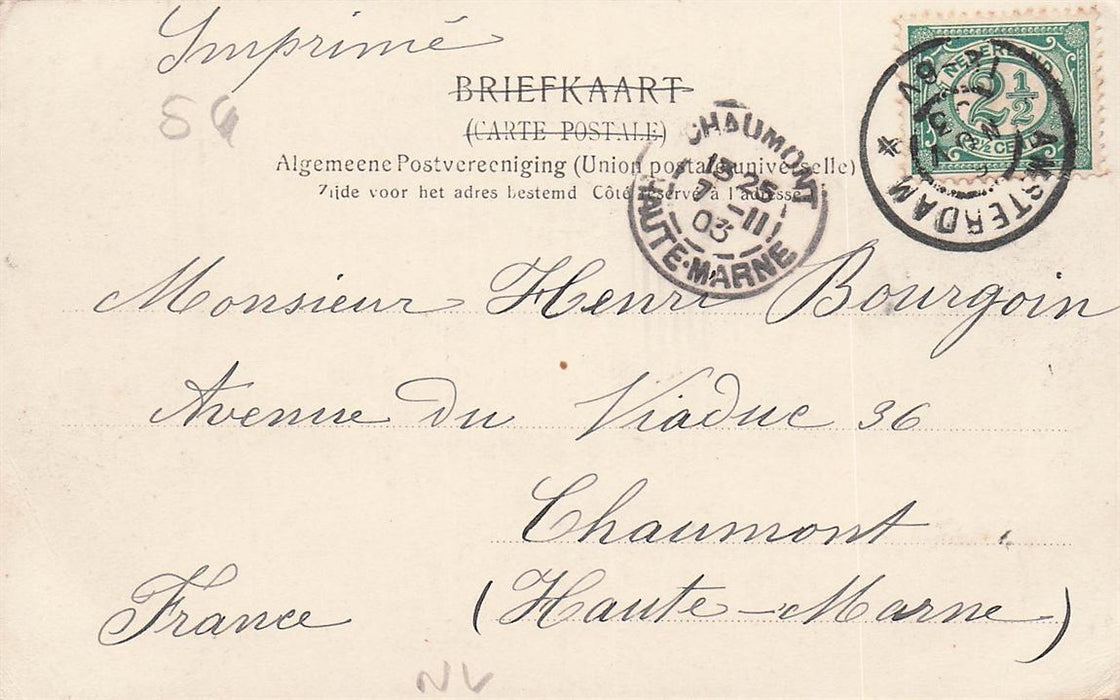 Imprimé
BRIEFKAART
(CARTE POSTALE)
Algemeene Postvereeniging (Union postale universelle)
Zijde voor het adres bestemd Côté réservé à l'adresse
NEDERLAND
2½
2½ CENT
AMSTERDAM
CHAUMONT
13 25
7 - 11
03
HAUTE-MARNE
Monsieur Henri Bourgoin
Avenue du Viaduc 36
Chaumont
France (Haute-Marne)
NV